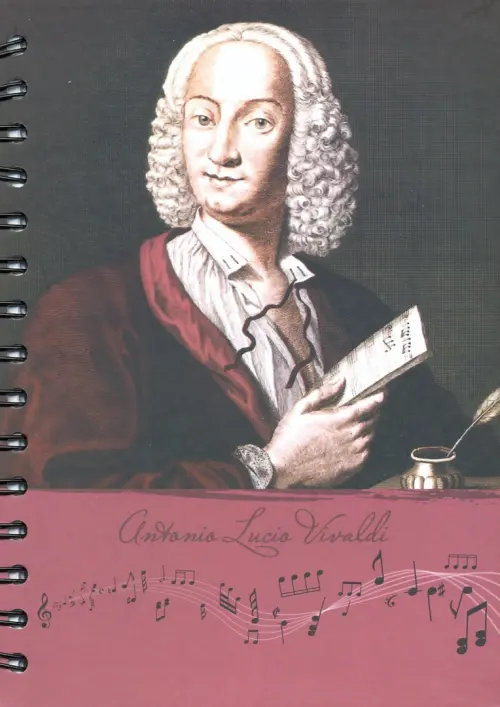 Antonio Lucio Vivaldi